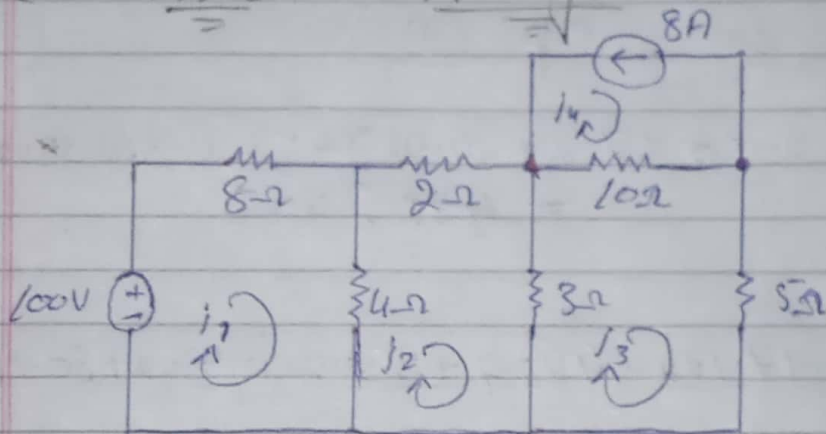 8A
i4
8Ω 2Ω 10Ω
100V + - i1 4Ω i2 3Ω i3 5Ω